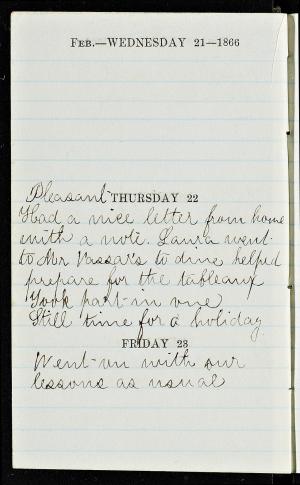 Feb.—WEDNESDAY 21—1866
Pleasant THURSDAY 22
Had a nice letter from home
with a note. Laura went
to Mr Vassar's to dine helped
prepare for the tableaux
Took part in one
Still time for a holiday
FRIDAY 23
Went on with our
lessons as usual